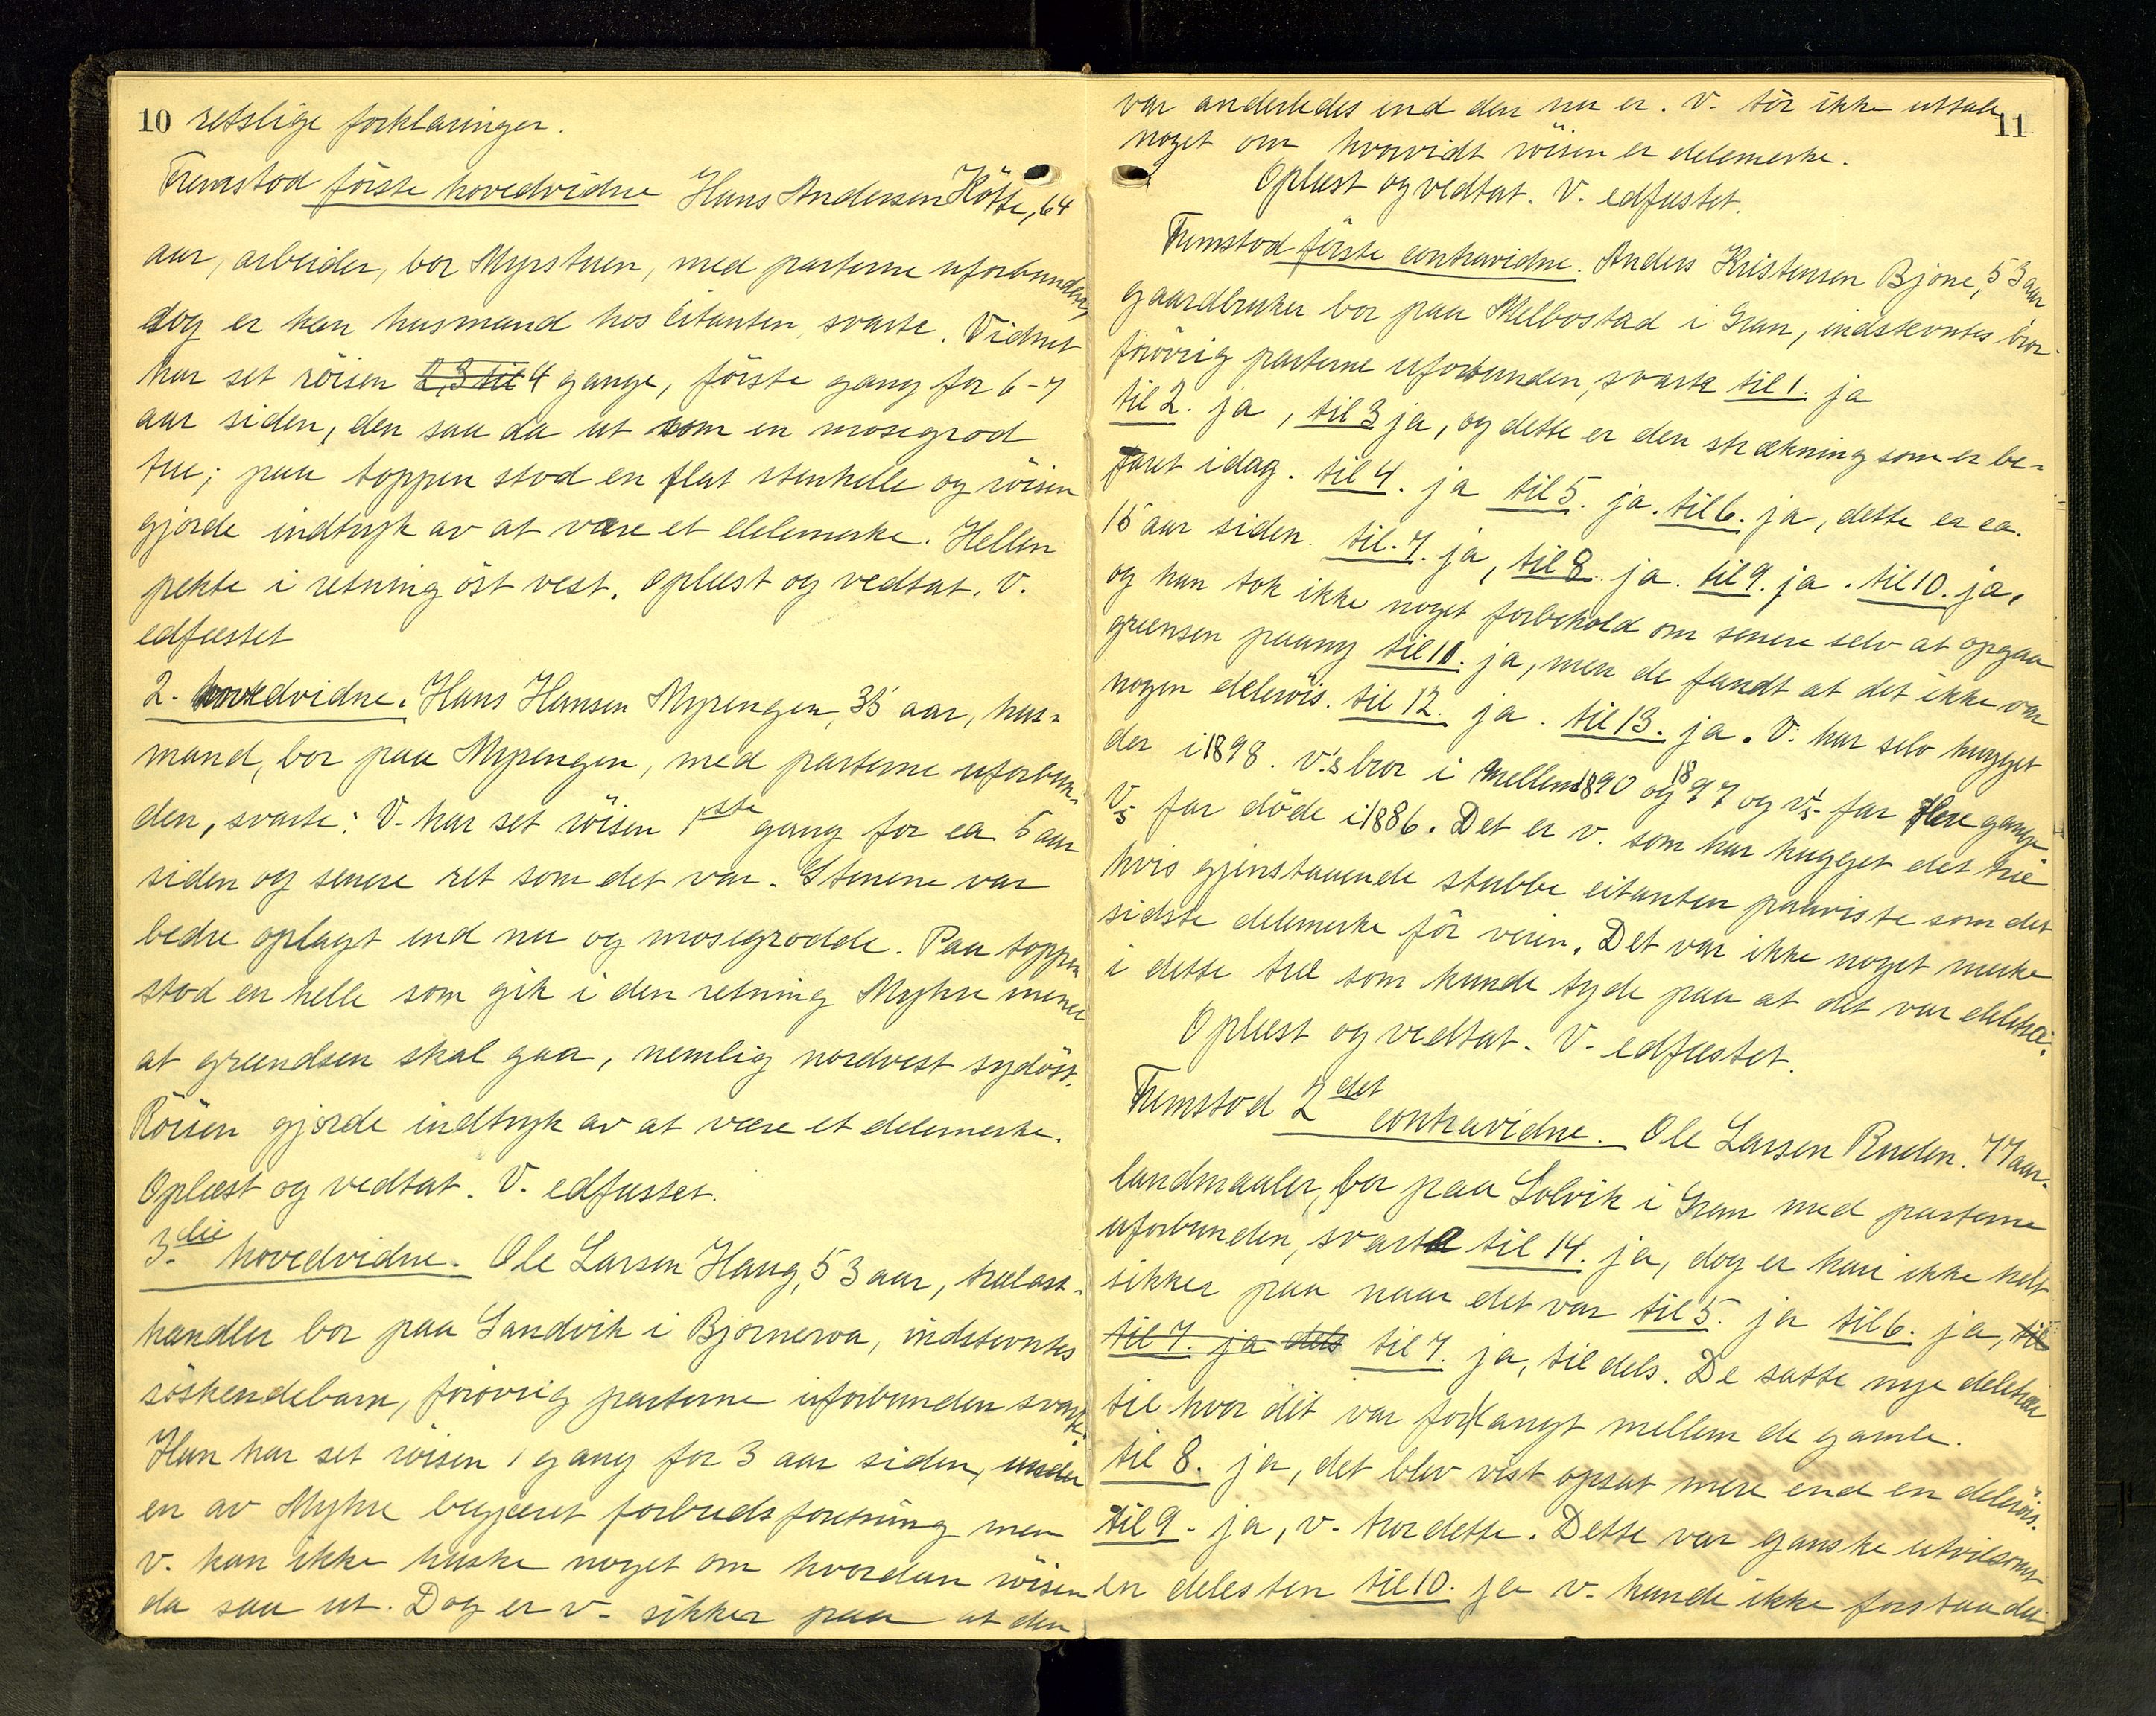 10 retslige forklaringer.
Fremstod første hovedvidne Hans Andersen Køtte, 64
aar, arbeider, bor Myrstuen, med parterne uforbunden,
dog er han husmand hos Citanten, svarte. Vidnet
har set röisen 2, 3 til 4 gange, förste gang for 6-7
aar siden, den saa da ut som en mosegrod
tue; paa toppen stod en flat stenhelle og röisen
gjorde indtryk av at være et delemerke. Hellen
pekte i retning öst vest. Oplæst og vedtat. V.
edfæstet
2. hovedvidne. Hans Hansen Myrengen, 35 aar, hus-
mand, bor paa Myrengen, med parterne uforbun-
den, svarte: V. har set röisen 1ste gang for ca. 5 aar
siden og senere ret som det var. Stenene var
bedre oplagt end nu og mosegrodde. Paa toppen
stod en helle som gik i den retning Myhre mener
at grændsen skal gaa, nemlig nordvest sydöst.
Röisen gjorde indtryk av at være et delemerke.
Oplæst og vedtat. V. edfæstet.
3.die hovedvidne. Ole Larsen Haug, 53 aar, trælast-
handler bor paa Sandvik i Bjoneroa, indstevntes
söskendebarn, forövrig parterne uforbunden svarte.
Han har set röisen 1 gang for 3 aar siden, under
en av Myhre begjæret forbudsforretning men
v. kan ikke huske noget om hvordan röisen
da saa ut. Dog er v. sikker paa at den
11
var anderledes end den nu er. V. tör ikke uttale
noget om hvorvidt röisen er delemerke.
Oplæst og vedtat. V. edfæstet.
Fremstod förste contravidne. Anders Kristensen Bjone, 53 aar
gaardbruker bor paa Melbostad i Gran, indstevntes bror
forövrig parterne uforbunden, svarte til 1. ja
til 2. ja, til 3 ja, og dette er den strækning som er be-
faret idag. til 4. ja til 5. ja. til 6. ja, dette er ca.
15 aar siden. til. 7. ja, til 8. ja. til 9. ja. til 10. ja,
og han tok ikke noget forbehold om senere selv at opgaa
grænsen paany til 11. ja, men de fandt at det ikke var
nogen delerøis. til 12. ja. til 13. ja. V. har selv hugget
der i 1898. v.'s bror i mellem 1890 og 1897 og v's far flere gange
V's far döde i 1886. Det er v. som har hugget det træ
hvis gjenstaaende stubbe citanten paaviste som det
sidste delemerke för veien. Det var ikke noget merke
i dette træ som kunde tyde paa at det var deletræ.
Oplæst og vedtat. V. edfæstet.
Fremstod 2det contravidne. Ole Larsen Ruden. 77 aar.
landmaaler, bor paa Solvik i Gran med parterne
uforbunden, svarte til 14. ja, dog er han ikke helt
sikker paa naar det var til 5. ja til 6. ja, til
til 7. ja dels til 7. ja, tildels. De satte nye deletrær
til hvor det var for langt mellem de gamle.
til 8. ja, det blev vist opsat mere end en delerøis.
til 9. ja, v. tror dette. Dette var ganske utvilsomt
en delesten til 10. ja v. kunde ikke forstaa det